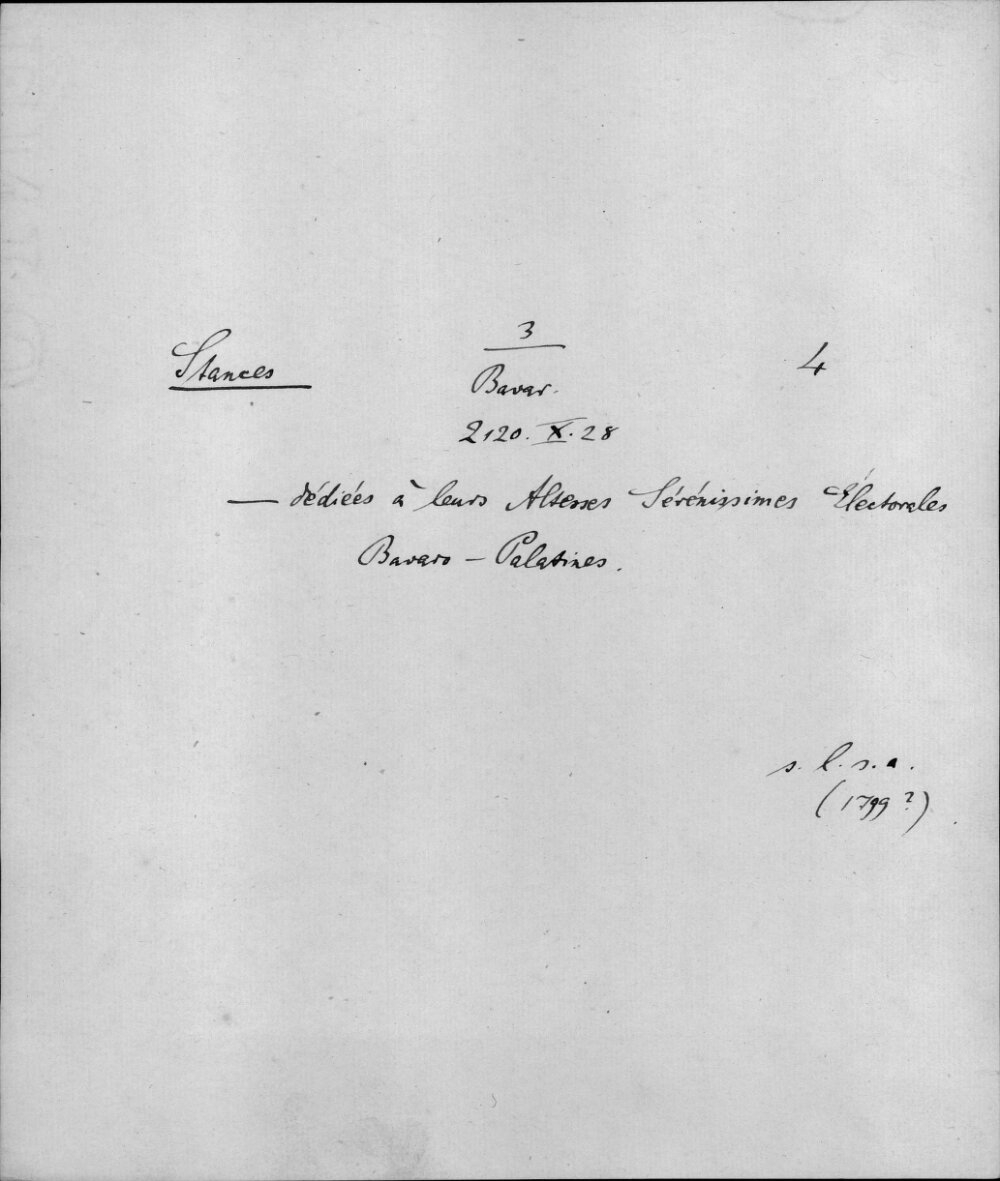 3
Stances
Bavar.
4
2120. X. 28
— dédiées à leurs Altesses Sérénissimes Électorales
Bavaro - Palatines.
s. l. s. a.
(1799?)